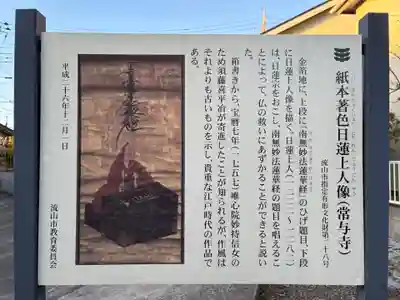 紙本著色日蓮上人像（常与寺）
流山市指定有形文化財第二十八号
金箔地に、上段に『南無妙法蓮華経』のひげ題目、下段
に日蓮上人像を描く。日蓮上人（一二二二〜一二八二）
は、日蓮宗をおこし、南無妙法蓮華経の題目を唱えるこ
とによって、仏の救いにあずかることができると説い
た。
箱書きから、宝暦七年（一七五七）唯心院妙持信女の
ため須藤喜平治が寄進したことが知られるが、作風は
それよりも古いものを示し、貴重な江戸時代の作品で
ある。
平成二十六年十二月一日
流山市教育委員会